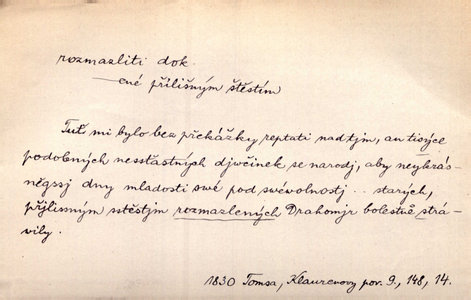 rozmazliti dok.
—cné přílišným štěstím
Tuť mi bylo bez překážky reptati nad tjm, an tisýce
podobných nessťastných djwčinek se narodj, aby neykrás-
něgssj dny mladosti swé pod swéwolnostj ... starých,
přjlissným sstěstjm rozmazlených Drahomjr bolestně strá-
wily.
1830 Tomsa, Klaurenowy pov. 9., 148, 14.